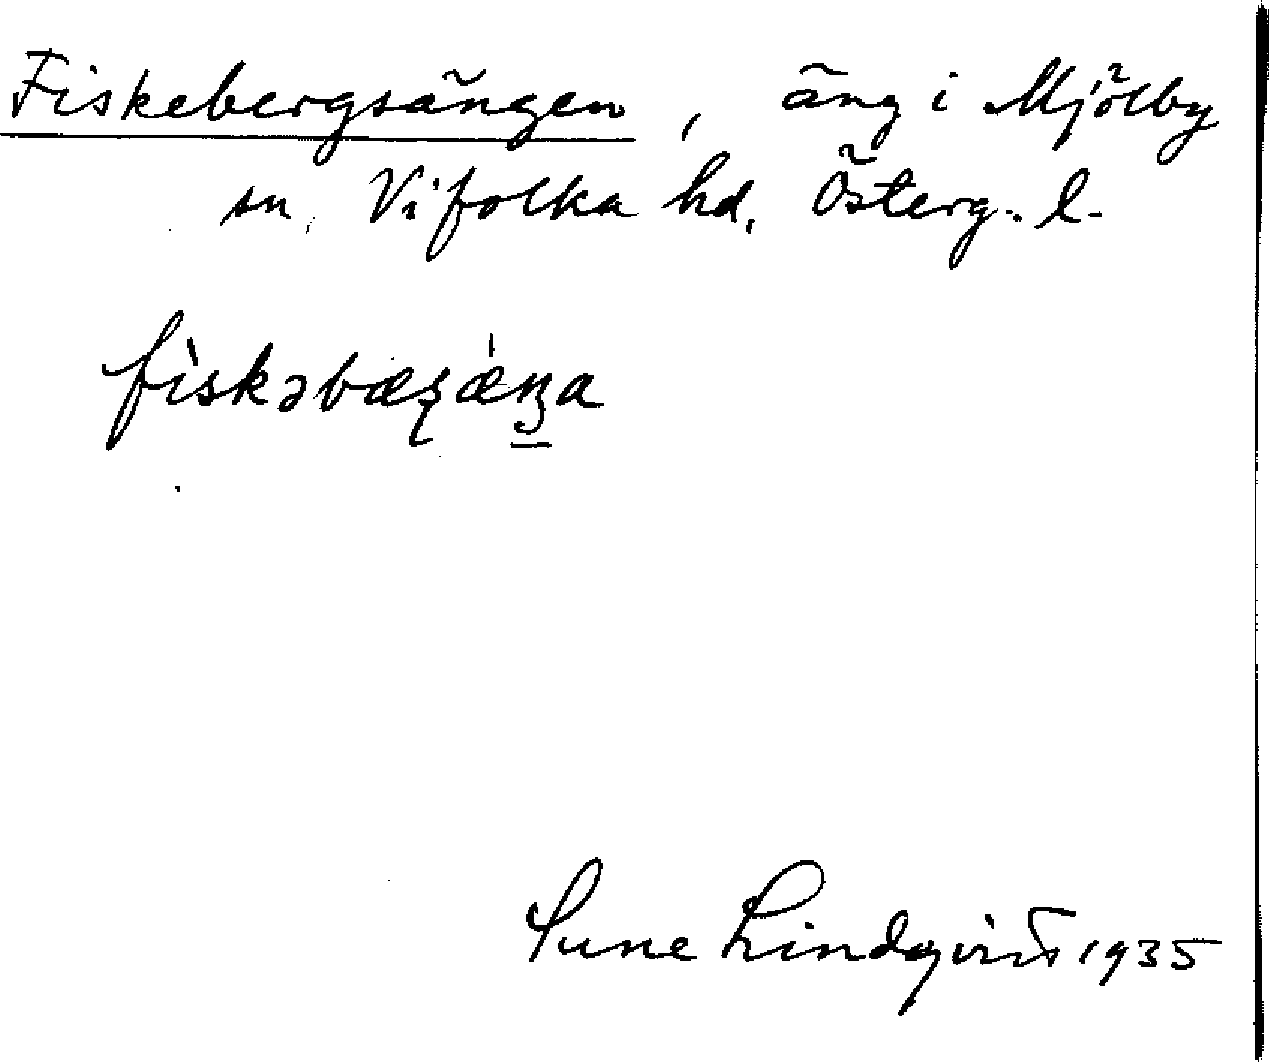 Fiskebergsängen, äng i Mjölby
sn, Vifolka hd, Österg. l.
fìskəbæʂǽŋa
Sune Lindqvist 1935